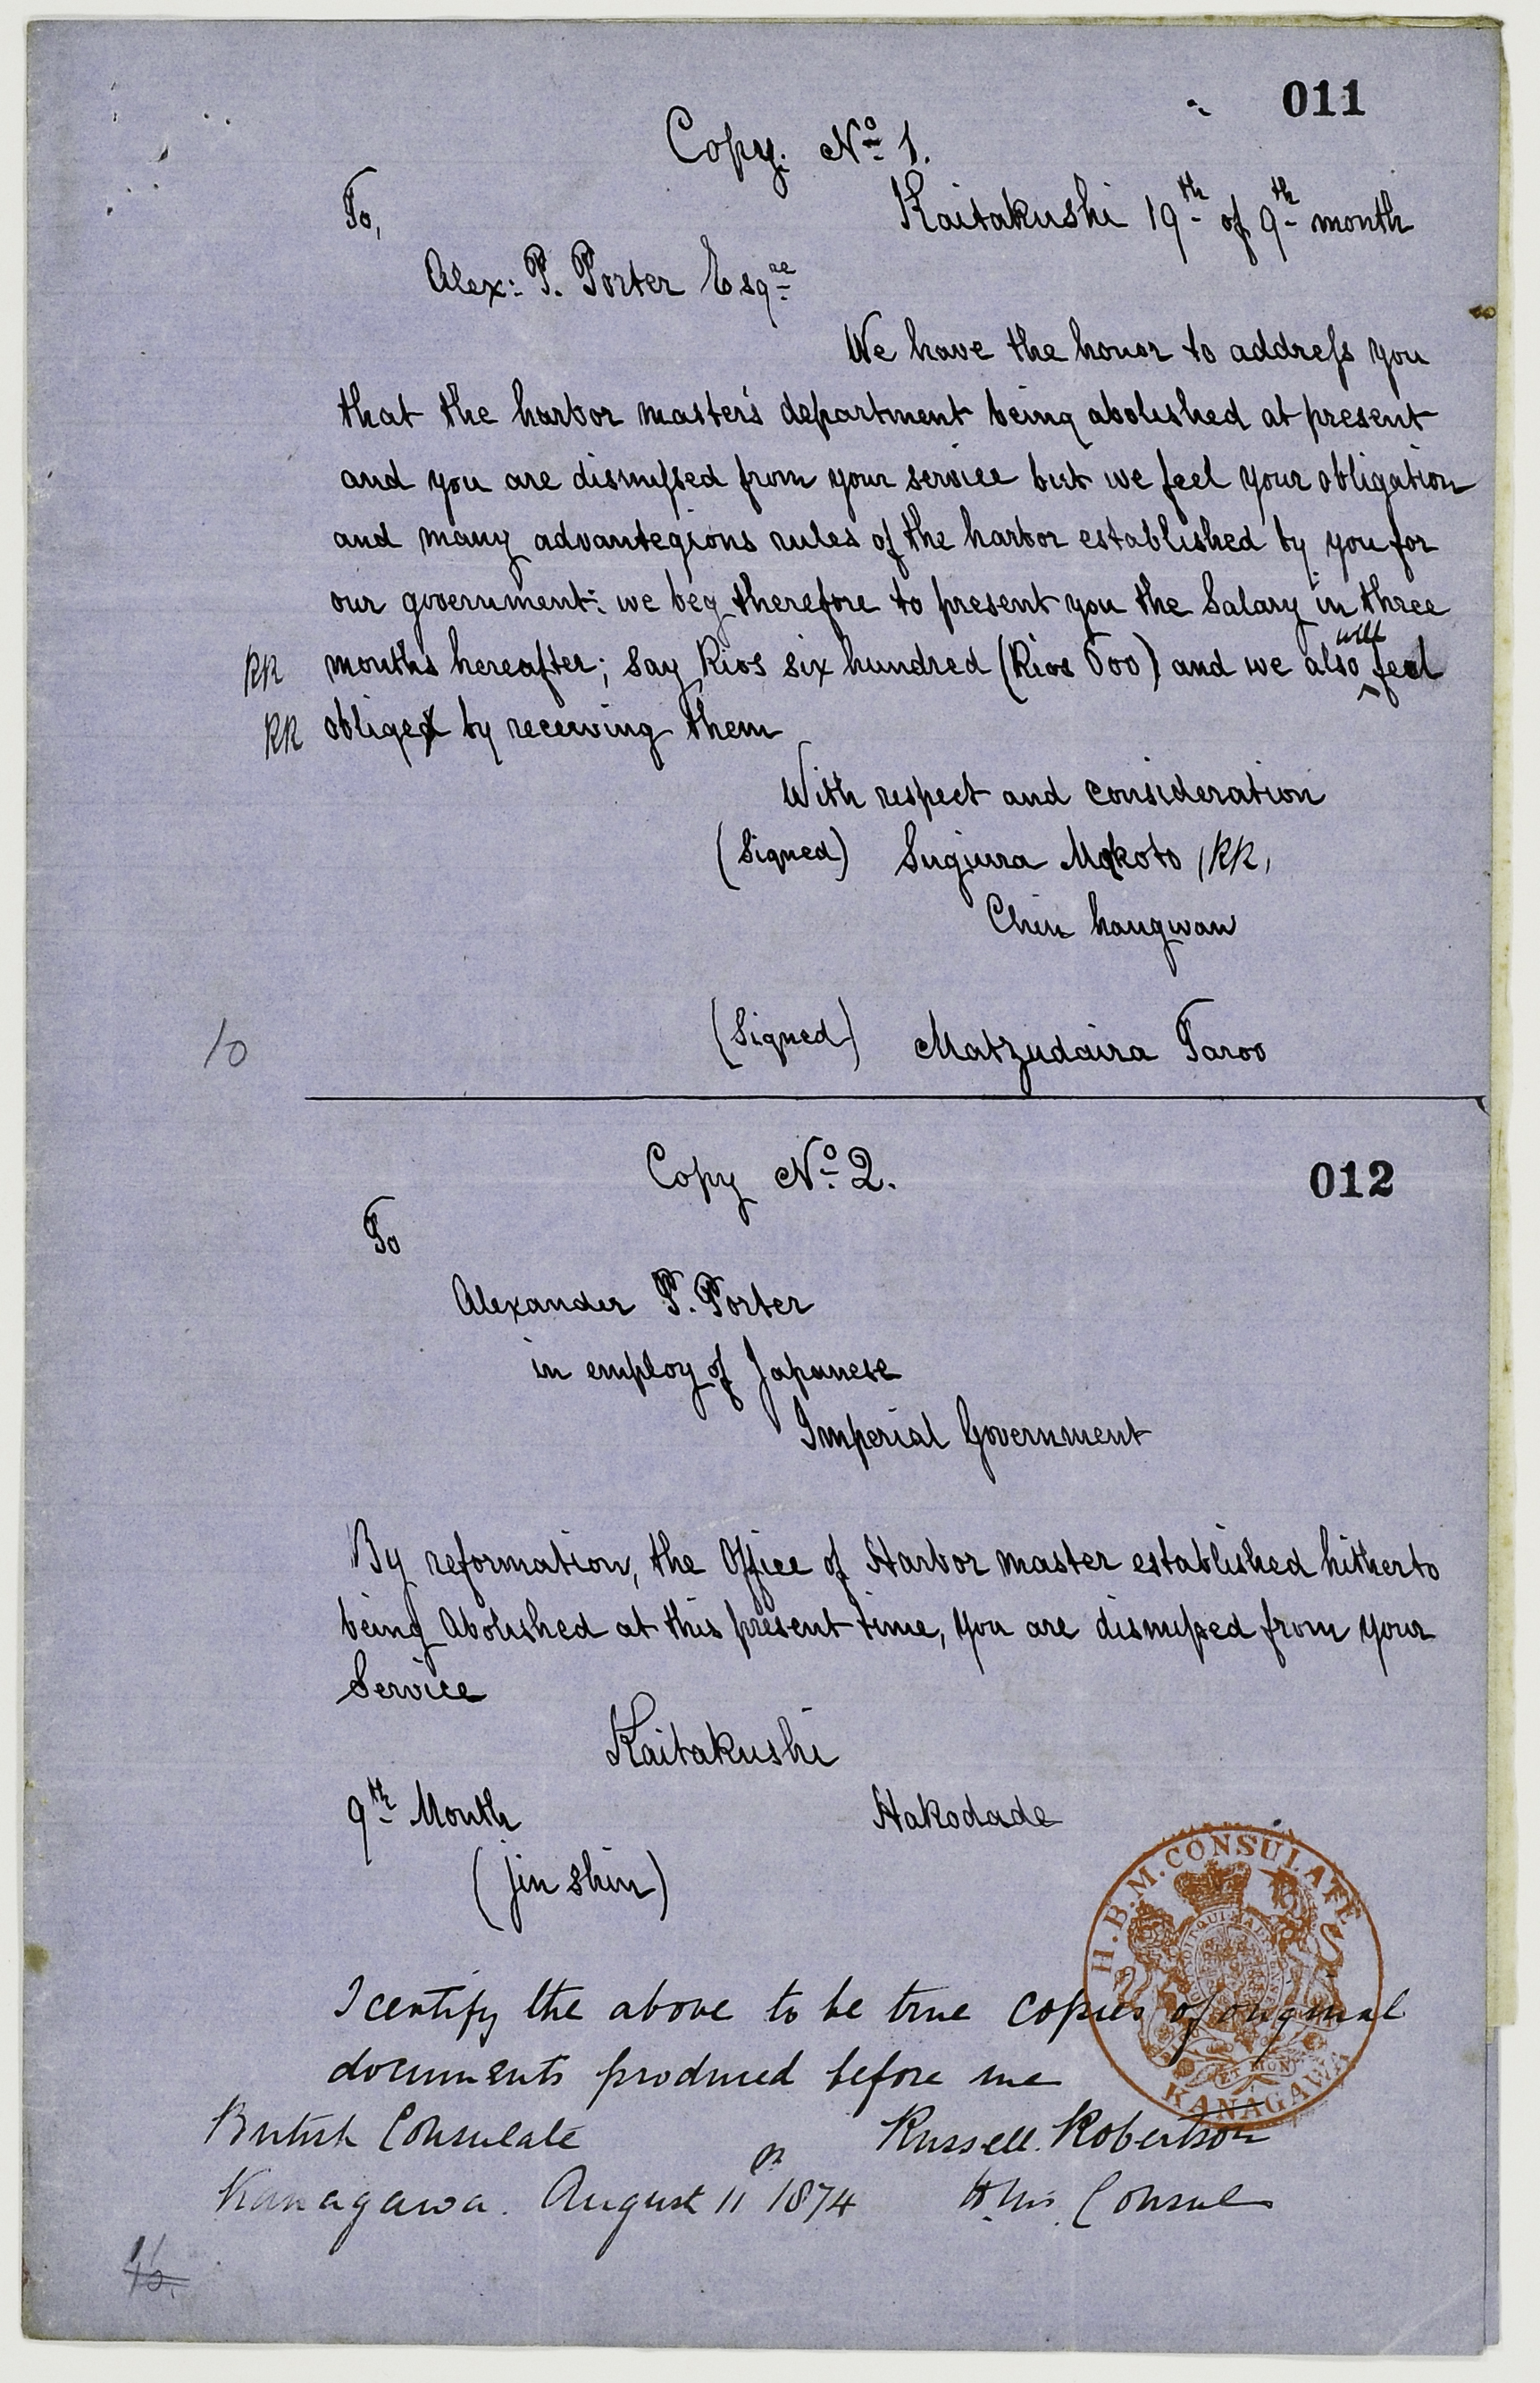 011
Copy. No 1.
To,
Kaitakushi 19th of 9th month
Alex: P. Porter Esqre
We have the honor to address you
that the harbor master's department being abolished at present
and you are dismissed from your service but we feel your obligation
and many advantegious rules of the harbor established by you for
our government: we beg therefore to present you the Salary in three
RR months hereafter; say Rios six hundred (Rios 600) and we also will feel
RR obliged by receiving them
With respect and consideration
(Signed) Sugiura Makoto (RR)
Chin hangwan
10
(Signed) Matzudaira Taroo
Copy No 2.
012
To
Alexander P. Porter
in employ of Japanese
Imperial Government
By reformation, the Office of Harbor master established hitherto
being Abolished at this present time, you are dismissed from your
Service
Kaitakushi
9th Month Hakodade
(jin shin)
H.B.M. CONSULATE
KANAGAWA
I certify the above to be true copies of original
documents produced before me
British Consulate Russell Robertson
Kanagawa. August 11 1874 H.M's. Consul